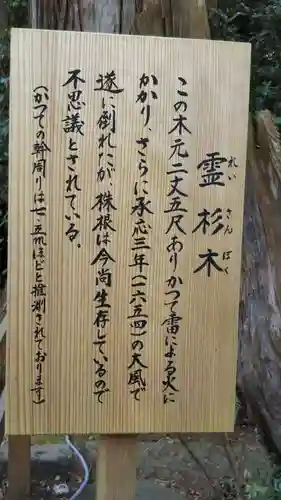 霊杉木
れい
さん
ぼく
この木元二丈五尺ありかつて雷による火に
かかり、さらに承応三年(一六五四)の大風で
遂に倒れたが、株根は今尚生存しているので
不思議とされている。
(かつての幹周りは七・五mほどと推測されております)